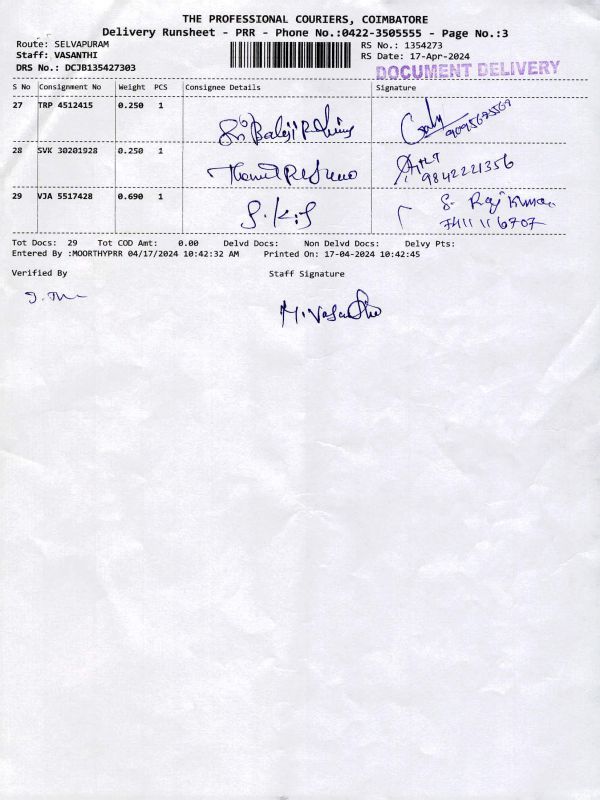 THE PROFESSIONAL COURIERS, COIMBATORE
Delivery Runsheet - PRR - Phone No.:0422-3505555 - Page No.:3
Route: SELVAPURAM RS No.: 1354273
Staff: VASANTHI RS Date: 17-Apr-2024
DRS No.: DCJB135427303 DOCUMENT DELIVERY
S No Consignment No Weight PCS Consignee Details Signature
27 TRP 4512415 0.250 1
28 SVK 30201928 0.250 1
9842221356
29 VJA 5517428 0.690 1 S. Raj Kumar
7411116707
Tot Docs: 29 Tot COD Amt: 0.00 Delvd Docs: Non Delvd Docs: Delvy Pts:
Entered By :MOORTHYPRR 04/17/2024 10:42:32 AM Printed On: 17-04-2024 10:42:45
Verified By Staff Signature
M. Vasantha